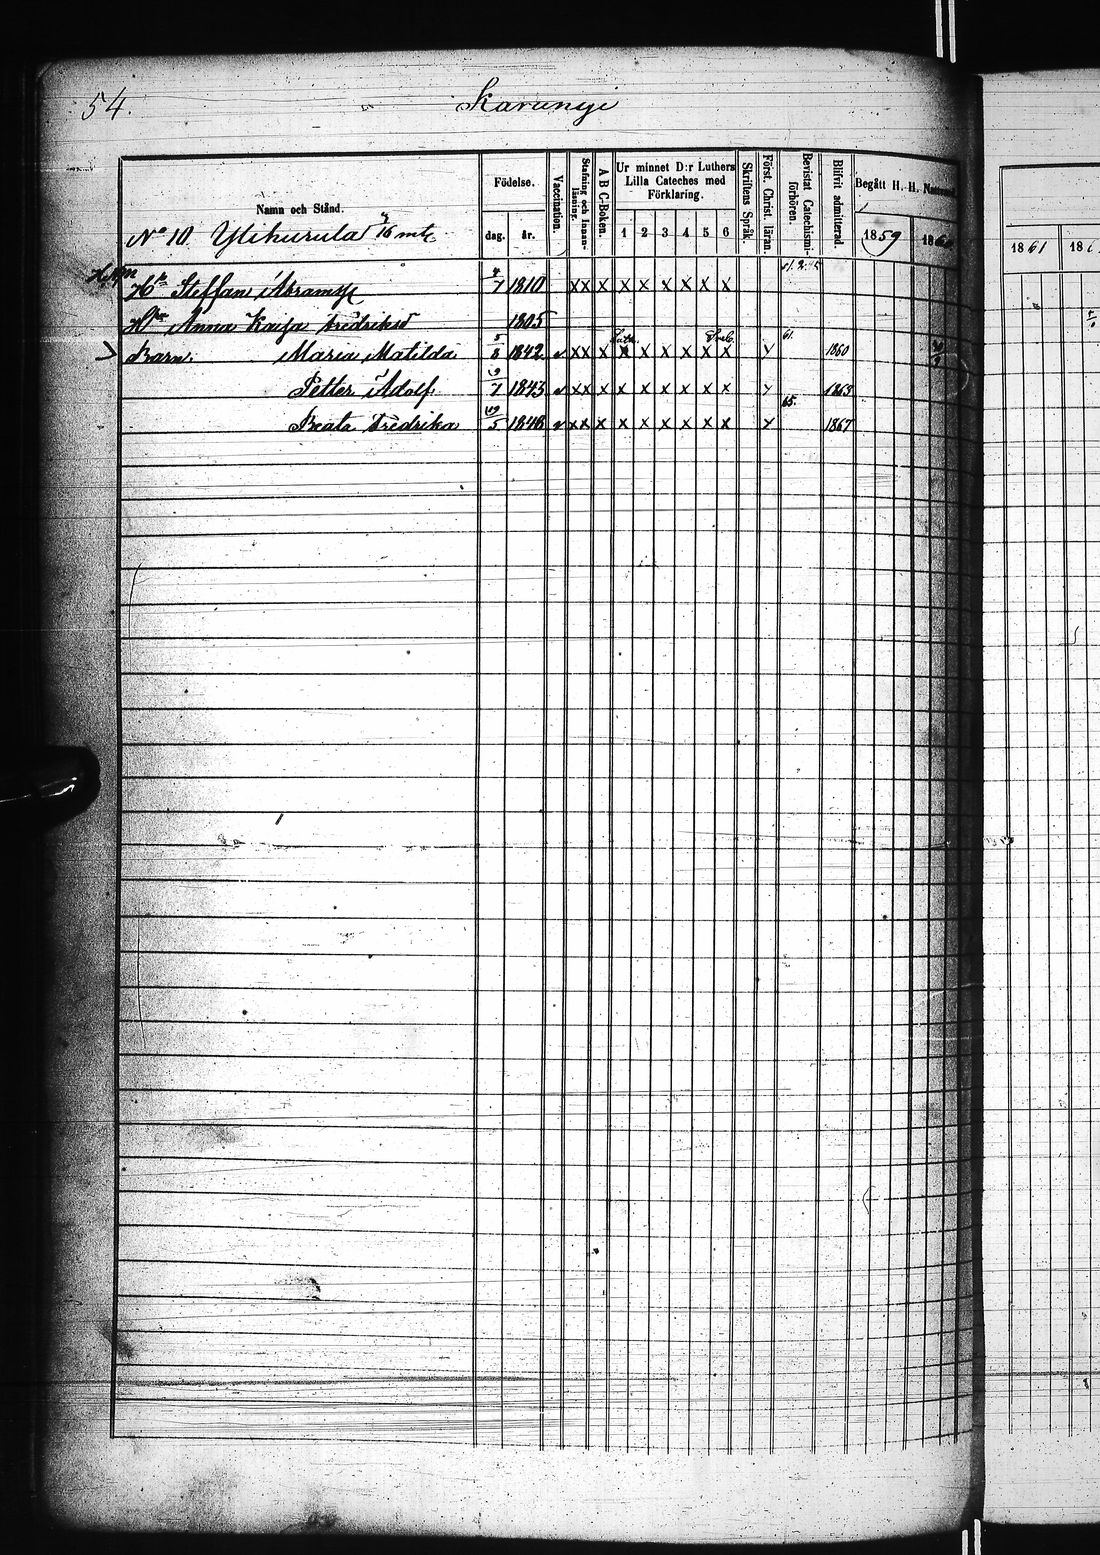 54. Karungi
Namn och Stånd. Födelse. dag. år. Vaccination. Stafning och Innanläsning. A B C-Boken. Ur minnet D:r Luthers Lilla Cateches med Förklaring. 1 2 3 4 5 6 Skriftens Språk. Först. Christ. läran. Bevistat Catechismi-förhören. Blifvit admitterad Begått H. H. Nattvard. 1859 1860 1861 186
No 10 Ylikurula 3/16 mtl
Steffan Abramss 4/7 1810 x x x x x x x x x
Anna Kajsa Fredriksd 1805
Barn Maria Matilda 5/8 1842 v x x x x x x x x x y 61. 1860
Petter Adolf 19/7 1843 v x x x x x x x x x y 1863
Beata Fredrika 19/5 1848 v x x x x x x x x x y 65. 1867